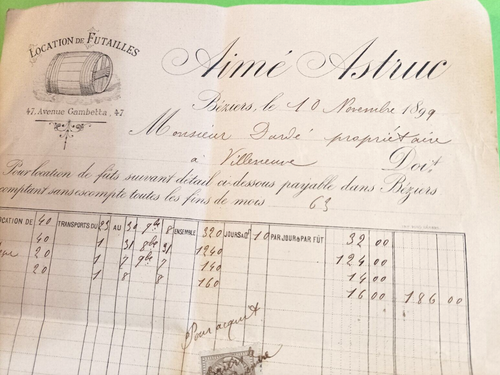 LOCATION DE FUTAILLES
47, Avenue Gambetta, 47
Aimé Astruc
Béziers, le 10 Novembre 1899
Monsieur Dardé propriétaire
à Villeneuve Doit
Pour location de fûts suivant détail ci-dessous payable dans Béziers
comptant sans escompte toutes les fins de mois 63
LOCATION DE 40 TRANSPORTS DU 23 AU 30 9bre 8 ENSEMBLE 320 JOURS à Cs 10 PAR JOUR & PAR FÛT 32 00
40 1 31 8bre 31 1240 124 00
20 1 7 9bre 7 140 14 00
20 1 8 8 160 16 00 186 00
Pour acquit